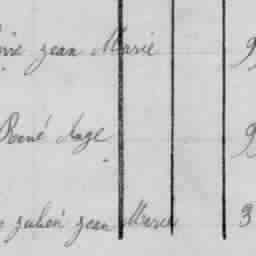 jean Marie 9
René Ange 9
julien jean Marie 3